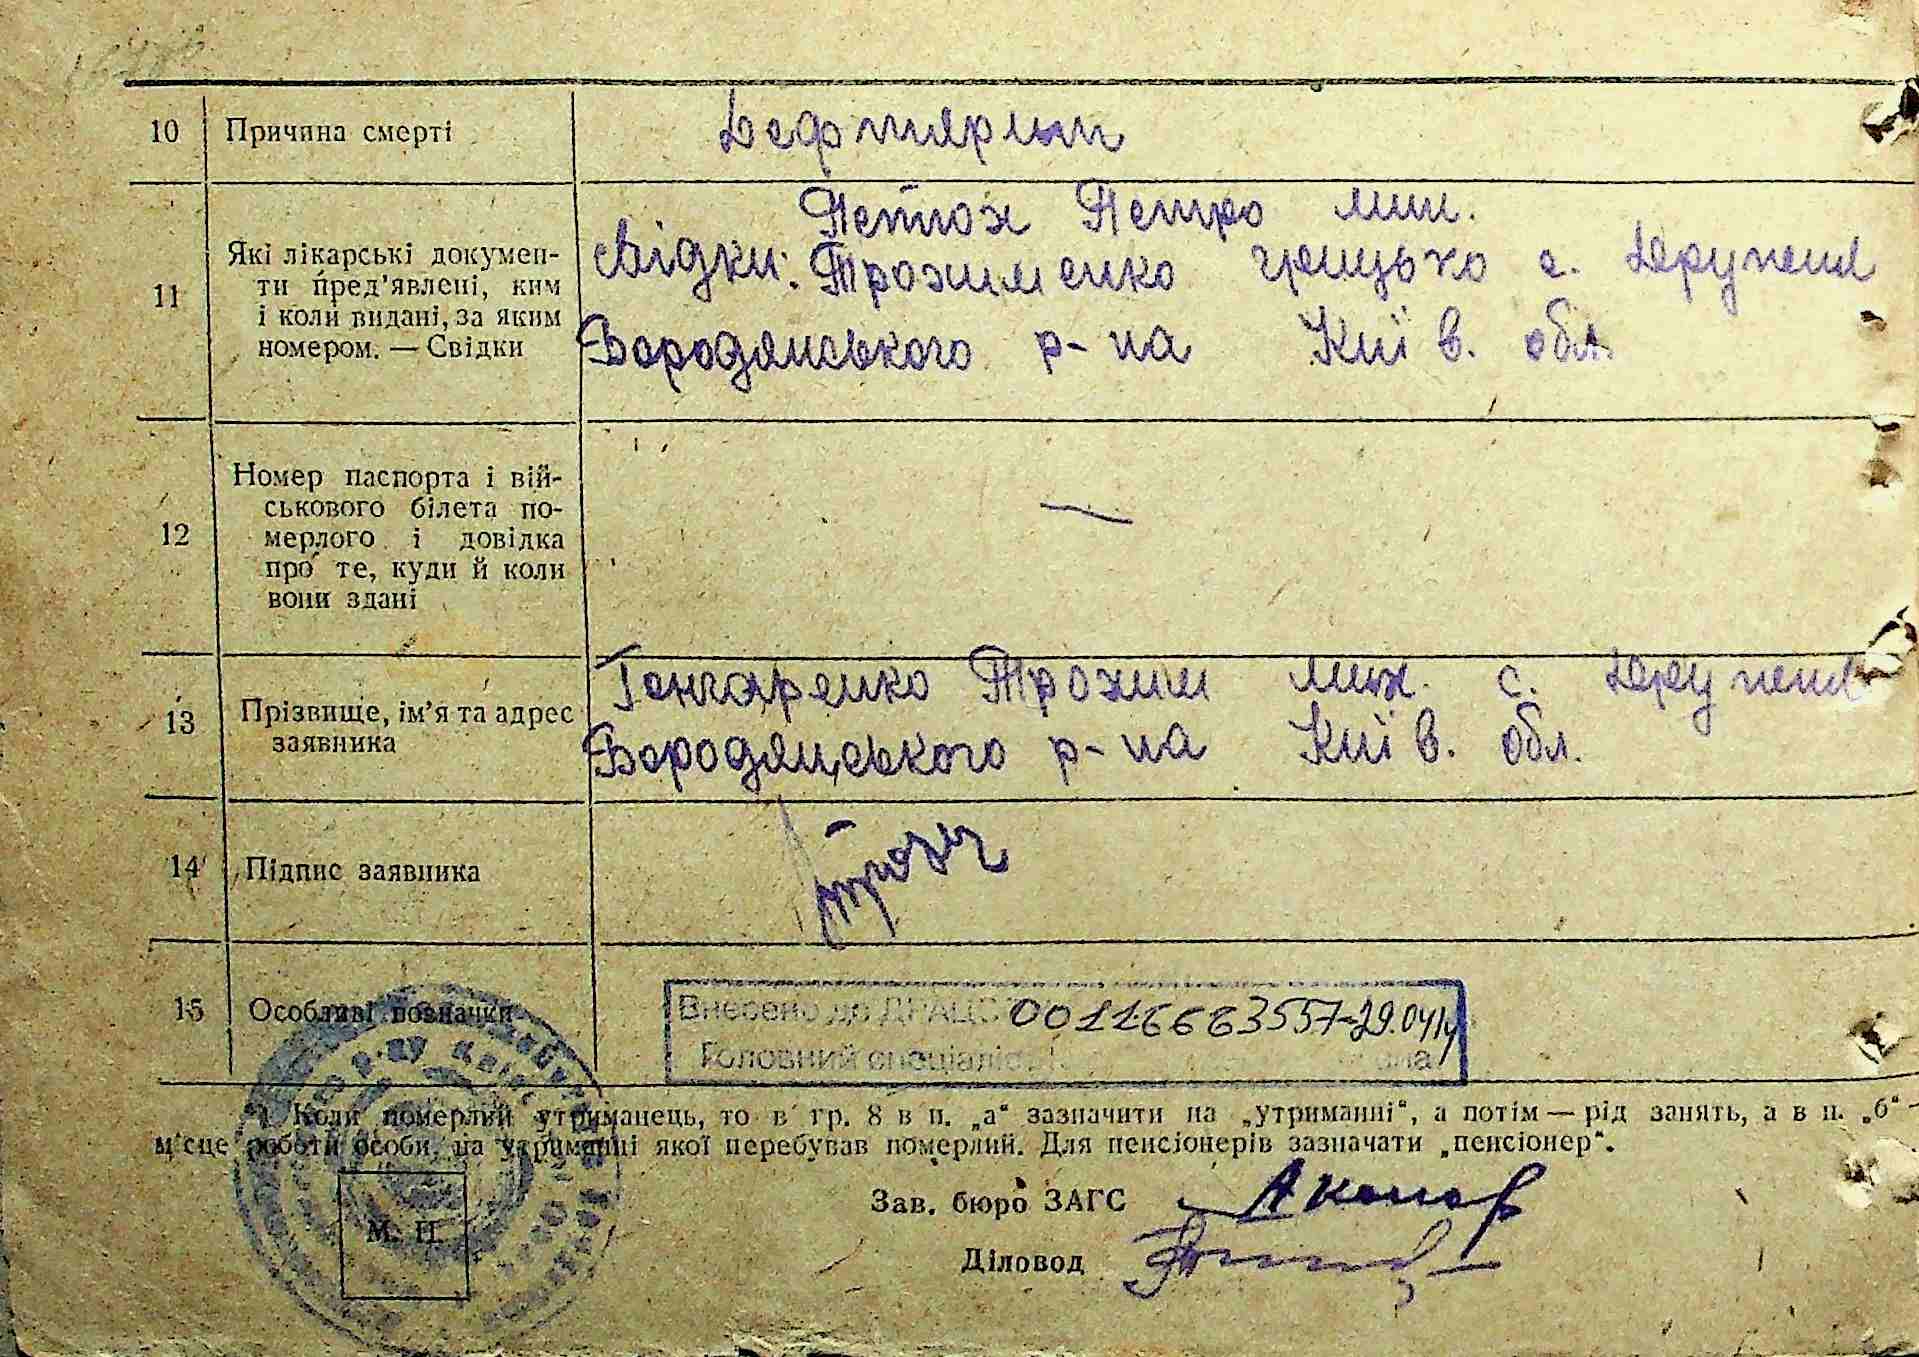 10 Причина смерті Дефтирит
Петрох Петро мит.
11 Які лікарські докумен-
ти пред'явлені, ким
і коли видані, за яким
номером. — Свідки
свідки: Трохименко Грицько с. Друпеня
Бородянського р-на Київ. обл.
12 Номер паспорта і вій-
ськового білета по-
мерлого і довідка
про те, куди й коли
вони здані —
13 Прізвище, ім'я та адрес
заявника
Гончаренко Трохим с.
Бородянського р-на Київ. обл.
14 Підпис заявника
15 Особливі позначки
Внесено до ДРАЦС 00116663557-29.04.14
Головний спеціаліст
*) Коли померлий утриманець, то в гр. 8 в п. „а“ зазначити на „утриманні“, а потім — рід занять, а в п. „б“ —
місце роботи особи, на утриманні якої перебував померлий. Для пенсіонерів зазначати „пенсіонер“.
Зав. бюро ЗАГС
Діловод
М. П.